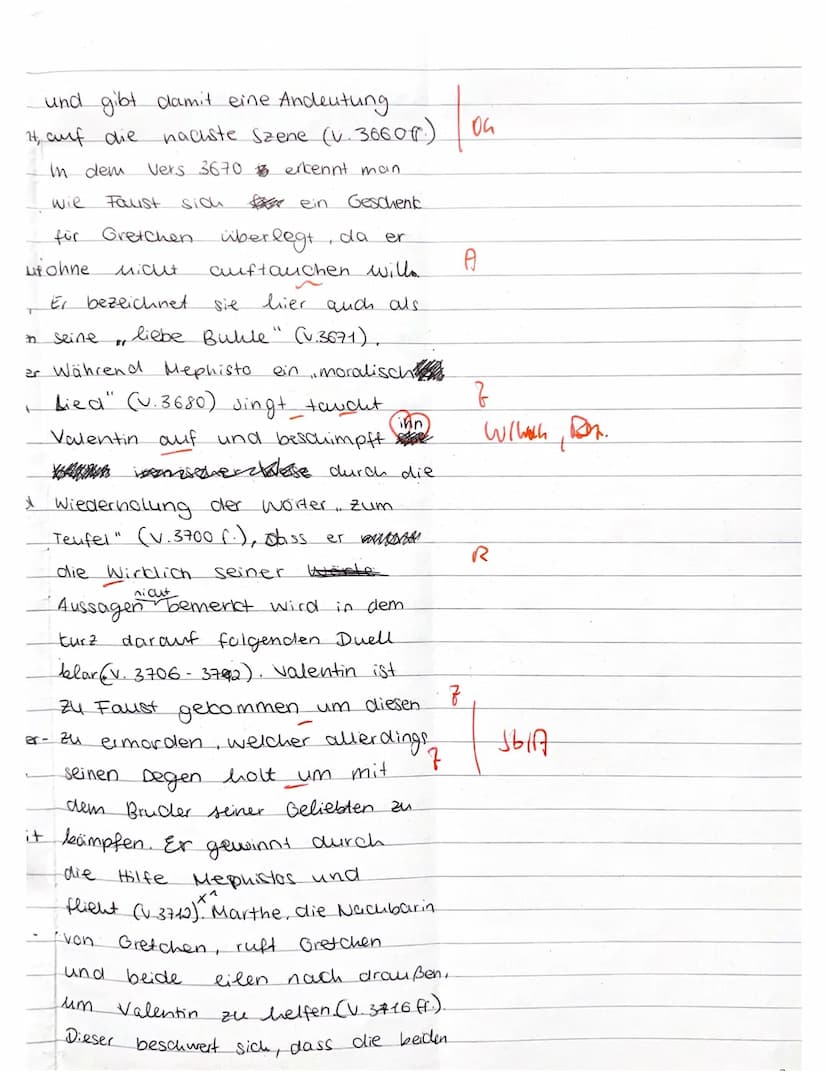 und gibt damit eine Andeutung
auf die nächste Szene (V. 3660 ff.)
In dem Vers 3670 erkennt man
wie Faust sich ein Geschenk
für Gretchen überlegt, da er
ohne nicht auftauchen will.
Er bezeichnet sie hier auch als
seine „liebe Buhle" (V.3671).
Während Mephisto ein „moralisch
Lied" (V.3680) singt taucht
Valentin auf und beschimpft ihn
durch die
Wiederholung der Wörter „zum
Teufel" (V.3700 f.), dass er
die Wirklich seiner
Aussagen nicht bemerkt wird in dem
kurz darauf folgenden Duell
klar (V. 3706 - 3712). Valentin ist
zu Faust gekommen um diesen
zu ermorden, welcher allerdings
seinen Degen holt um mit
dem Bruder seiner Geliebten zu
kämpfen. Er gewinnt durch
die Hilfe Mephistos und
flieht (V.3712). Marthe, die Nachbarin
von Gretchen, ruft Gretchen
und beide eilen nach draußen,
um Valentin zu helfen (V. 3716 ff.).
Dieser beschwert sich, dass die beiden
A
R
Sb/A